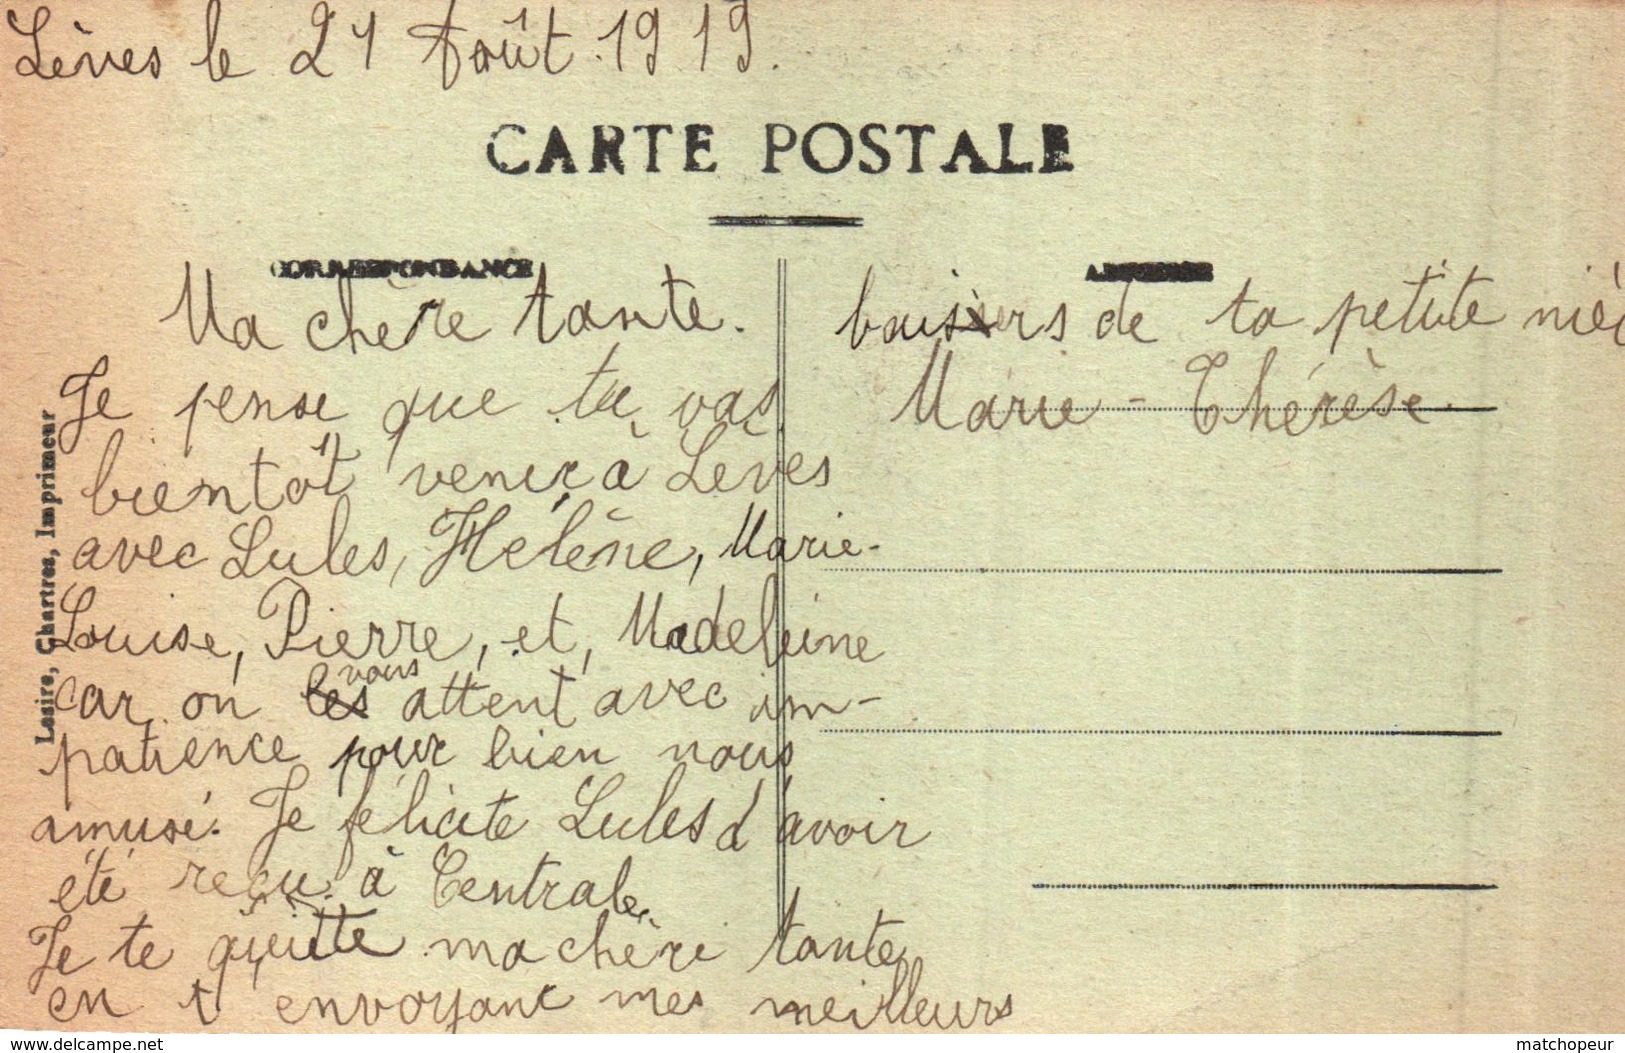 Lèves le 21 Août 1919.
CARTE POSTALE
CORRESPONDANCE
ADRESSE
Ma chère tante.
Je pense que tu vas
bientôt venir à Lèves
avec Lules, Hélène, Marie-
Louise, Pierre, et, Madeleine
car on les vous attent avec im-
patience pour bien nous
amusé. Je félicite Lules d'avoir
été reçu à Centrale.
Je te quitte ma chère tante
en t'envoyant mes meilleurs
baisers de ta petite niè
Marie-Thérèse.
Lesire, Chartres, Imprimeur
www.delcampe.net
matchopeur